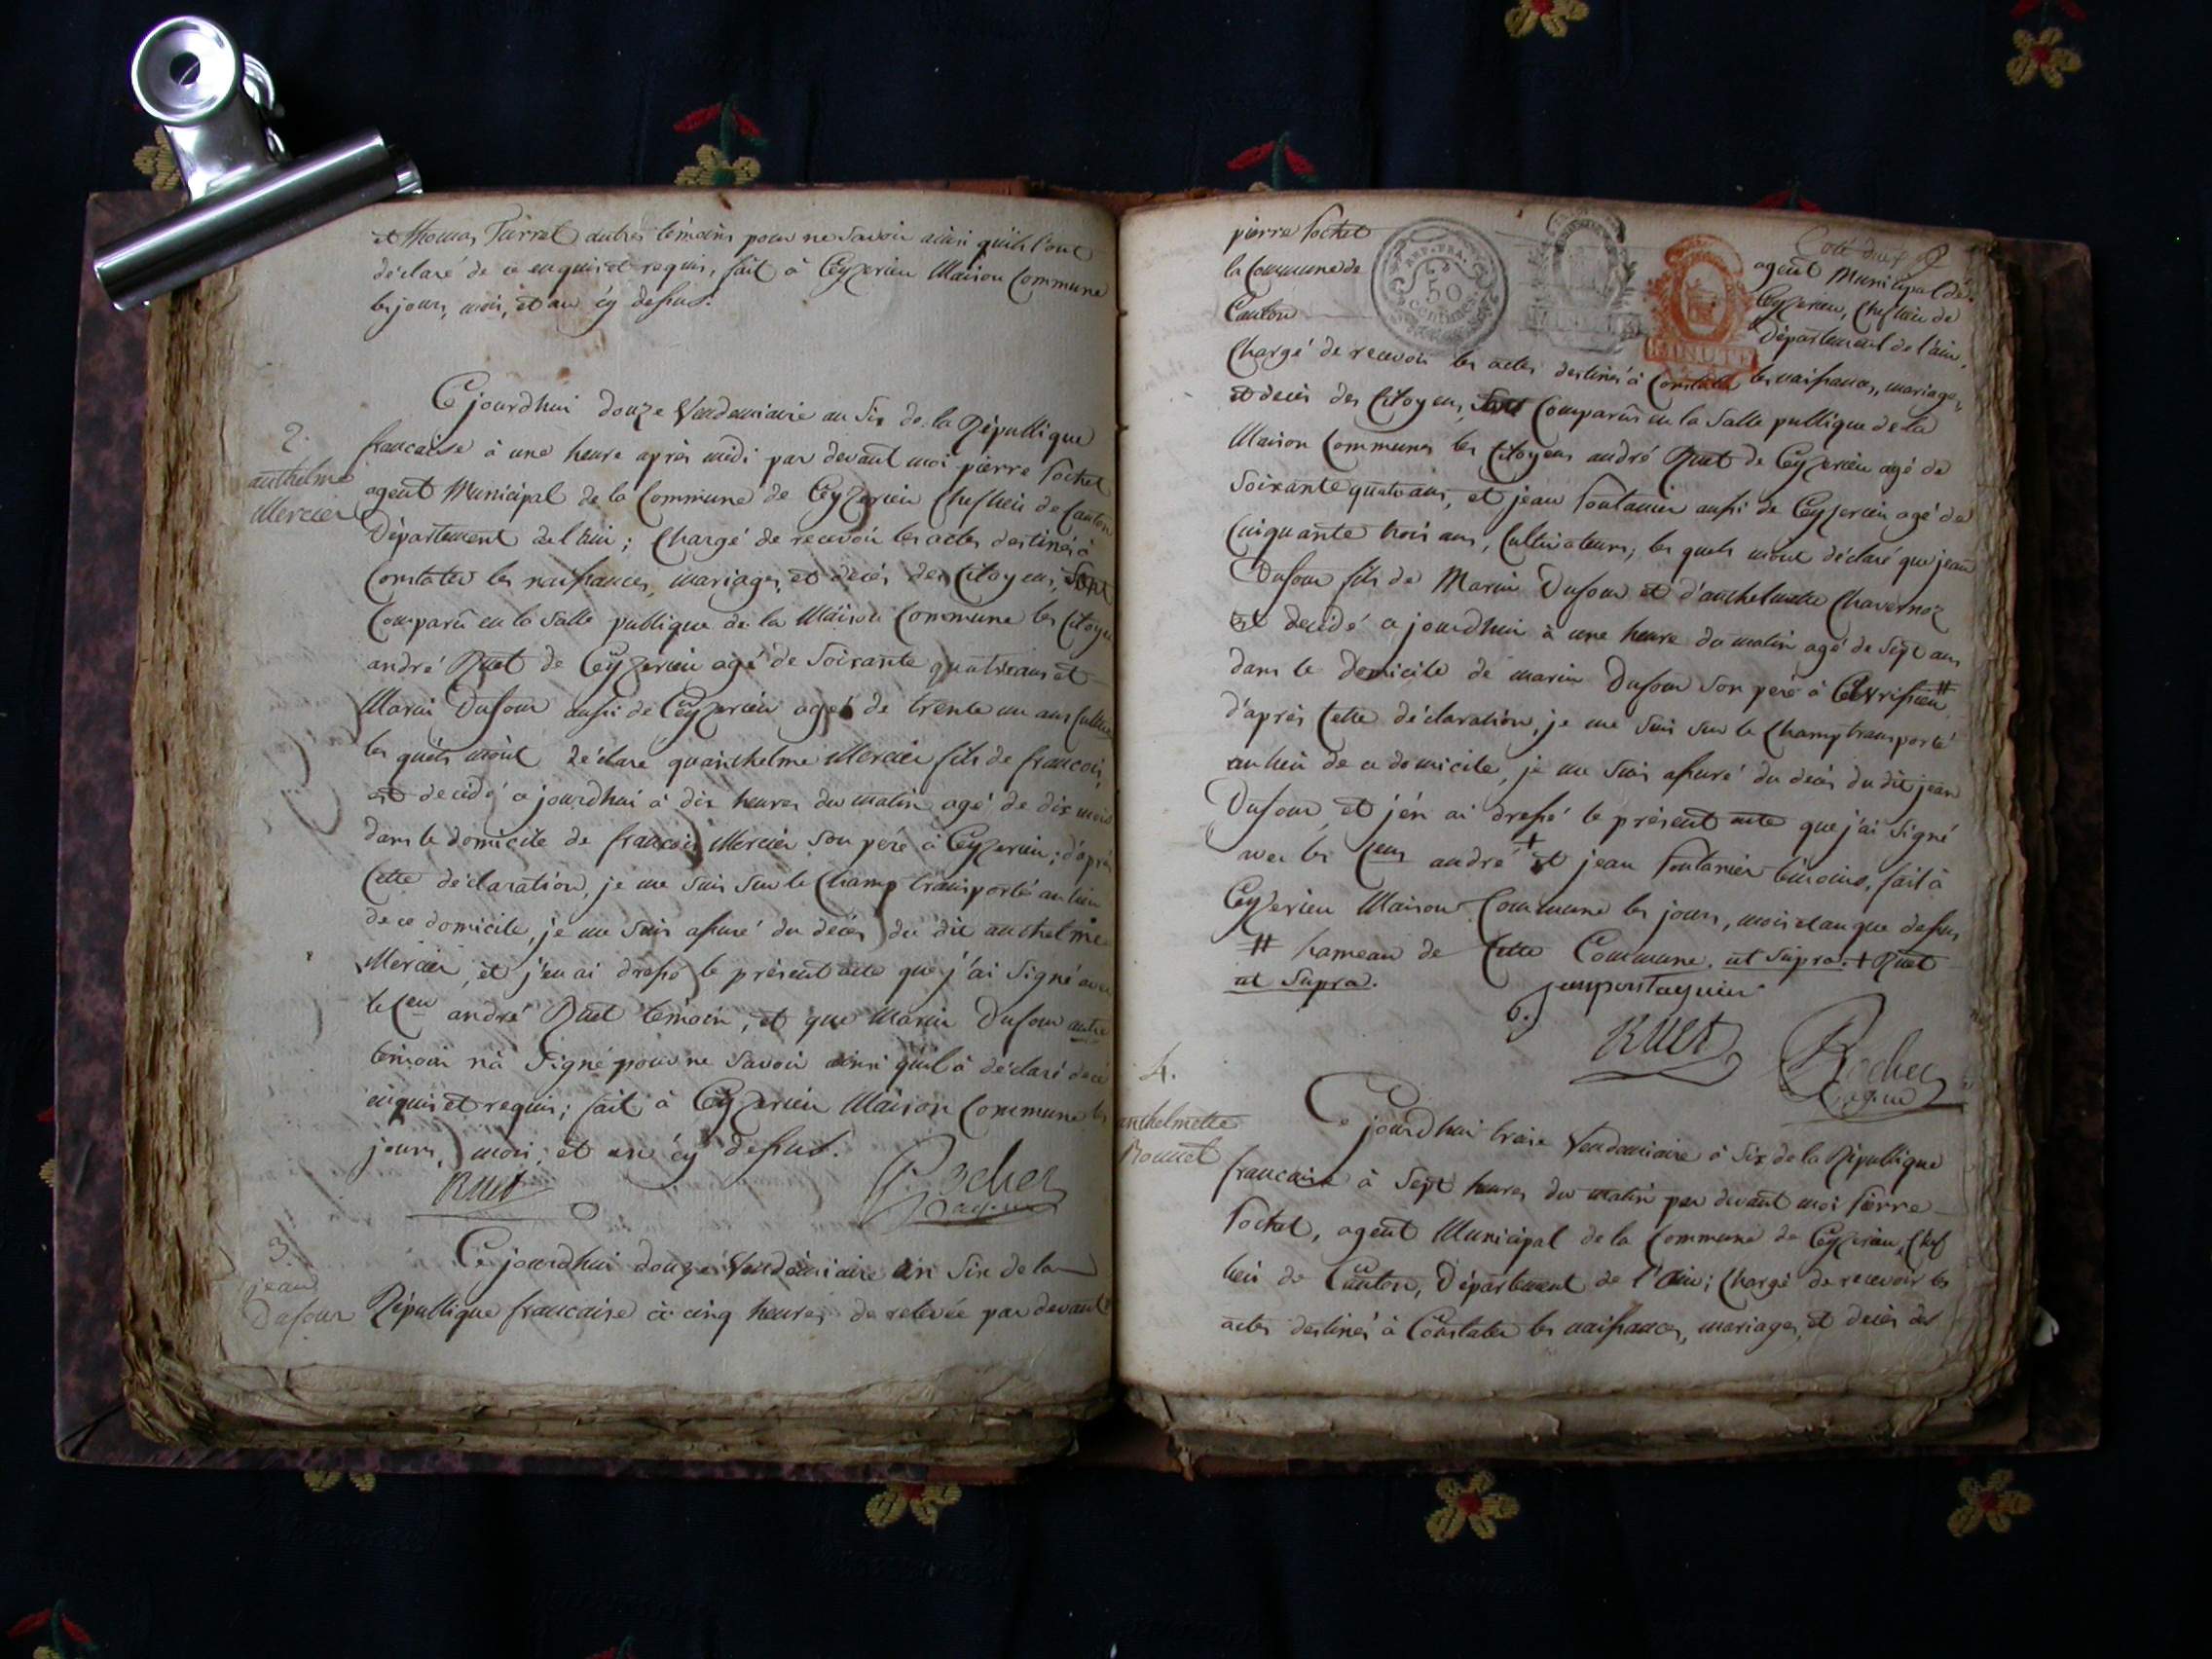 et Thomas Turrel autres témoins pour ne savoir ainsi qu'ils l'ont
déclaré de ce enquis et requis, fait à Ceyzerieu Maison Commune
les jours, mois, et an cy dessus.
2.
anthelme
Mercier
Ce jourdhui douze Vendemiaire an Six de la République
francaise à une heure après midi par devant moi pierre Pochet
agent Municipal de la Commune de Ceyzerieu Cheflieu de Canton
Département de l'ain; Chargé de recevoir les actes destinés à
Constater les naissances, mariages, et décès des Citoyens, Sont
Comparû en la Salle publique de la Maison Commune les Citoyens
andré Ruet de Ceyzerieu agé de Soixante quatre ans et
Marin Dufour aussi de Ceyzerieu agé de trente un ans
les quels m'ont déclaré qu'anthelme Mercier fils de francois,
est decédé ce jourdhui à dix heures du matin agé de dix mois
dans le domicile de francois Mercier Son pere à Ceyzerieu; d'après
Cette déclaration, je me Suis Sur le Champ transporté au lieu
de ce domicile, je me Suis assuré du décès du dit anthelme
Mercier, et j'en ai dressé le présent acte que j'ai Signé avec
le Cen andré Ruet témoin, et que Marin Dufour autre
témoin n'a Signé pour ne Savoir ainsi qu'il à déclaré de ce
enquis et requis; fait à Ceyzerieu Maison Commune les
jours, mois, et an cy dessus.
Ruet Pochet
agent
3.
jean
Dufour
Ce jourdhui douze Vendémiaire an Six de la
République francaise à cinq heures de relevée par devant
Coté deux
pierre Pochet agent Municipal de
la Commune de Ceyzerieu, Cheflieu de
Canton Département de l'ain,
REP. FRA.
50
CENTIMES
MINUTE
Chargé de recevoir les actes destinés à Constater les naissances, mariages,
et décès des Citoyens, Sont Comparûs en la Salle publique de la
Maison Commune les Citoyens andré Ruet de Ceyzerieu agé de
Soixante quatre ans, et jean fontanier aussi de Ceyzerieu agé de
Cinquante trois ans, Cultivateurs; les quels m'ont déclaré que jean
Dufour fils de Marin Dufour et d'anthelmette Chavernoz
est decédé ce jourdhui à une heure du matin agé de Sept ans
dans le domicile de marin Dufour Son pere à #
d'après Cette déclaration, je me Suis Sur le Champ transporté
au lieu de ce domicile, je me Suis assuré du décès du dit jean
Dufour, et j'en ai dressé le présent acte que j'ai Signé
avec les Cens andré + et jean fontanier témoins, fait à
Ceyzerieu Maison Commune les jours, mois et an que dessus
# hameau de Cette Commune. ut Supra. + Ruet
ut Supra.
Ruet Pochet
agent
4.
anthelmette
Ce jourdhui treize Vendemiaire à Six de la République
francaise à Sept heures du matin par devant moi Pierre
Pochet, agent Municipal de la Commune de Ceyzerieu, Chef
lieu de Canton, Département de l'Ain; Chargé de recevoir les
actes destinés à Constater les naissances, mariages, et décès des